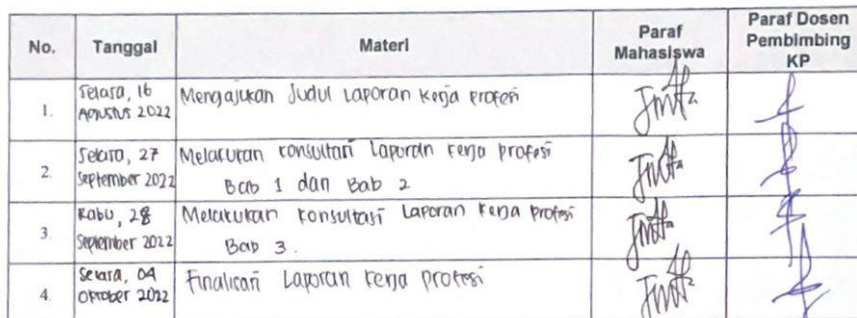 No. Tanggal Materi Paraf Mahasiswa Paraf Dosen Pembimbing KP
1. Selasa, 16 Agustus 2022 Mengajukan Judul Laporan Kerja Profesi
2. Selasa, 27 September 2022 Melakukan konsultasi Laporan Kerja Profesi
Bab 1 dan Bab 2
3. Rabu, 28 September 2022 Melakukan konsultasi Laporan Kerja Profesi
Bab 3.
4. Selasa, 04 Oktober 2022 Finalisasi Laporan Kerja Profesi